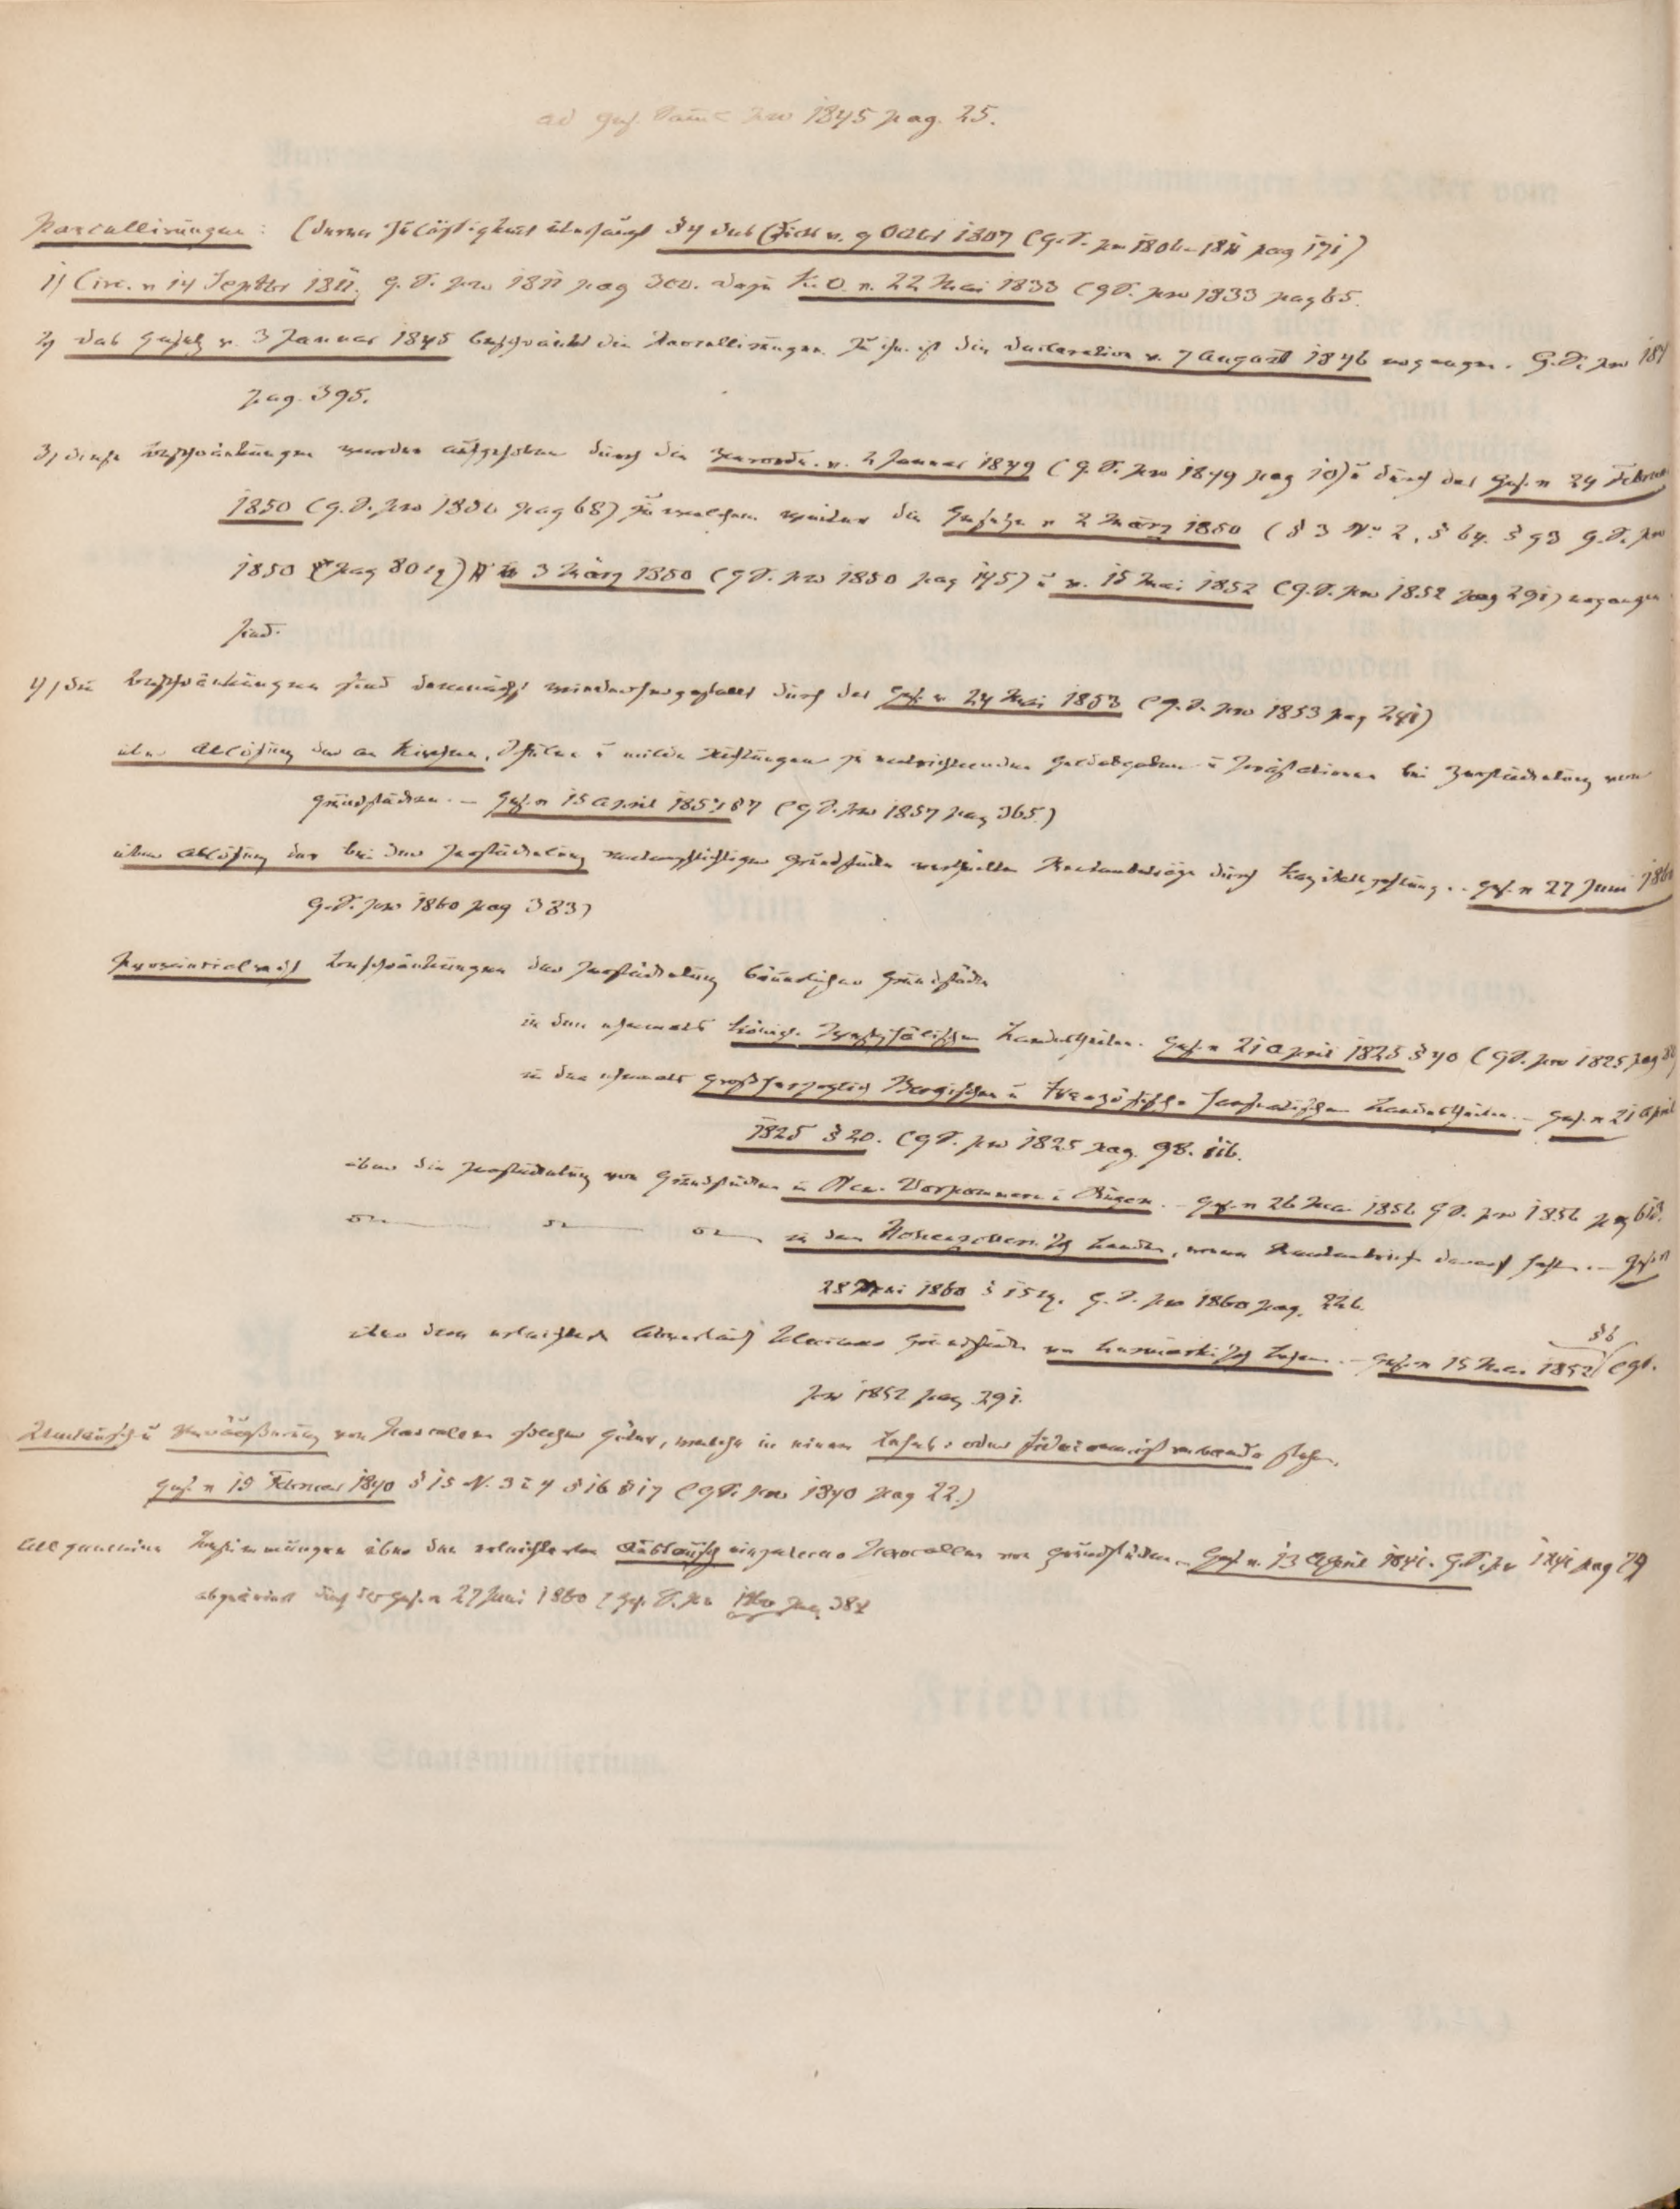 ad Ges. Samml. pro 1845 pag. 25.
Parcellirungen: (deren Zulässigkeit überhaupt §4 des Edicts v. 9 Octbr 1807 (G.S. pro 1806–1811 pag 171)
1) Circ. v 14 Septbr 1811. G. S. pro 1811 pag 300. dazu K.O. v. 22 Mai 1833 (G.S. pro 1833 pag 65.
2) das Gesetz v. 3 Januar 1845 beschränkt die Parcellirungen. Zu ihm ist die Declaration v. 7 August 1846 ergangen. G.S. pro 184
pag. 395.
3, diese Beschränkungen wurden aufgehoben durch die Verordn. v. 2 Januar 1849 (G.S. pro 1849 pag 10) u durch das Ges. v 24 Februar
1850 (G.S. pro 1850 pag 68) zu welchem weiter die Gesetze v 2 März 1850 (§ 3 No 2, § 64. § 93 G.S. pro
1850 pag 80 sq) v 3 März 1850 (G.S. pro 1850 pag 145) u v. 15 Mai 1852 (G.S. pro 1852 pag 291) ergangen
sind.
4, die Beschränkungen sind demnächst wiederhergestellt durch das Ges. v 24 Mai 1853 (G.S. pro 1853 pag 241)
über Ablösung der an Kirchen, Schulen u milde Stiftungen zu entrichtenden Geldabgaben u Praestationen bei Zerstückelung von
Grundstücken. – Ges. v 15 April 1857 (G.S. pro 1857 pag 365.)
über Ablösung der bei der Zerstückelung rentenpflichtiger Grundstücke vertheilten Rentenbeträge durch Kapitalzahlung. – Ges. v 27 Juni 1860
G.S. pro 1860 pag 383)
Provinzialrechtl Beschränkungen der Zerstückelung bäuerlicher Grundstücke
in den ehemals Königl. Westphälischen Landestheilen. Ges. v 21 April 1825 § 40 (G.S. pro 1825 pag
in den ehemals Großherzoglich Bergischen u Französisch Hanseatischen Landestheilen. – Ges. v 21 April
1825 § 20. (G.S. pro 1825 pag. 98. 116.
über die Zerstückelung von Grundstücken in Neu-Vorpommern u Rügen. – Ges. v 26 Mai 1856 G S. pro 1856 pag 613.
in den Hohenzollern. Landen, wenn Rentenbriefe darauf haften. – Ges. v
28 Mai 1860 § 15 sq. G. S. pro 1860 pag. 226.
über den erleichterten Abverkauf kleinerer Grundstücke von Lausnischen Lehen. – Ges. v 15 Mai 1852 § 6 (GS.
pro 1852 pag 291.
Umtausch u Veräußerung von Parcelen solcher Güter, welche in einem Lehns- oder Fideicommißverbande stehen.
Ges. v 15 Februar 1840 § 15 N. 3 u 4 § 16 § 17 (G.S. pro 1840 pag 22.)
Allgemeine Bestimmungen über den erleichterten Austausch einzelner Parcellen von Grundstücken. – Ges. v. 13 April 1841. G.S. pr 1841 pag 79
abgeändert durch das Ges. v 27 Juni 1860 (Ges. S. pro 1860 pag 384